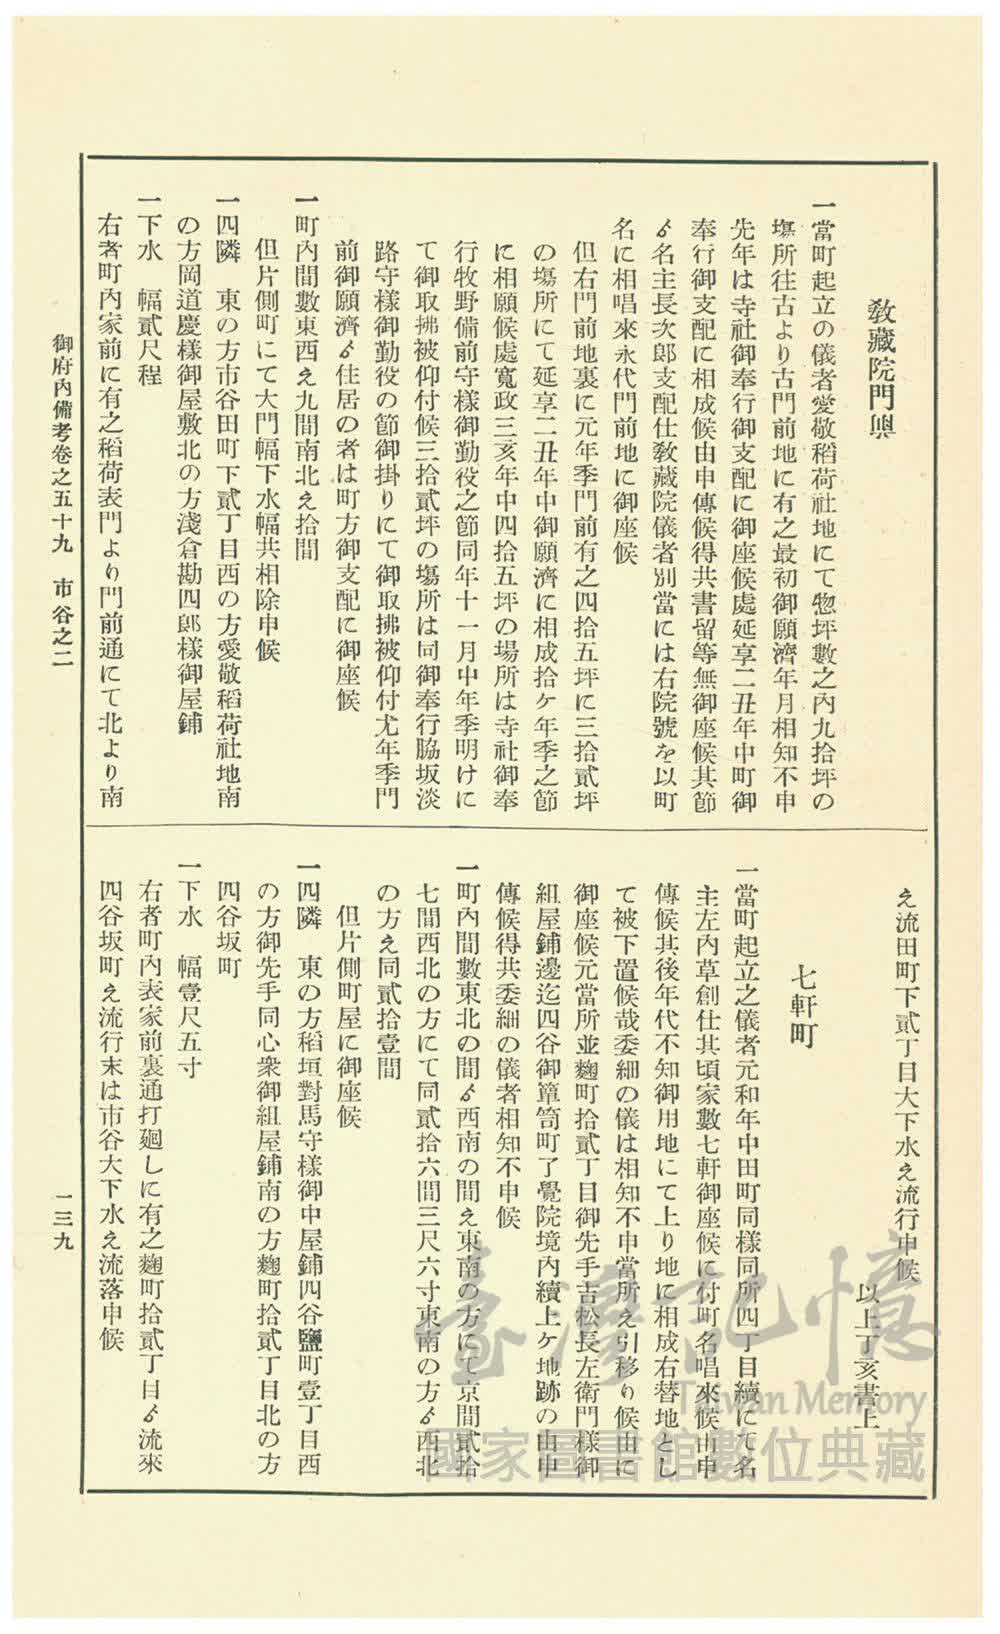 敎藏院門與
一當町起立の儀者愛敬稻荷社地にて惣坪數之內九拾坪の
塲所往古より古門前地に有之最初御願濟年月相知不申
先年は寺社御奉行御支配に御座候處延享二丑年中町御
奉行御支配に相成候由申傳候得共書留等無御座候其節
ゟ名主長次郞支配仕敎藏院儀者別當には右院號を以町
名に相唱來永代門前地に御座候
但右門前地裏に元年季門前有之四拾五坪に三拾貳坪
の塲所にて延享二丑年中御願濟に相成拾ケ年季之節
に相願候處寬政三亥年中四拾五坪の塲所は寺社御奉
行牧野備前守樣御勤役之節同年十一月中年季明けに
て御取拂被仰付候三拾貳坪の塲所は同御奉行脇坂淡
路守樣御勤役の節御掛りにて御取拂被仰付尤年季門
前御願濟ゟ住居の者は町方御支配に御座候
一町內間數東西え九間南北え拾間
但片側町にて大門幅下水幅共相除申候
一四隣　東の方市谷田町下貳丁目西の方愛敬稻荷社地南
の方岡道慶樣御屋敷北の方淺倉勘四郞樣御屋鋪
一下水　幅貳尺程
右者町內家前に有之稻荷表門より門前通にて北より南
え流田町下貳丁目大下水え流行申候
以上丁亥書上
七軒町
一當町起立之儀者元和年中田町同樣同所四丁目續にて名
主左內草創仕其頃家數七軒御座候に付町名唱來候由申
傳候其後年代不知御用地にて上り地に相成右替地とし
て被下置候哉委細の儀は相知不申當所え引移り候由に
御座候元當所並麴町拾貳丁目御先手吉松長左衛門樣御
組屋鋪邊迄四谷御簞笥町了覺院境內續上ケ地跡の由申
傳候得共委細の儀者相知不申候
一町內間數東北の間ゟ西南の間え東南の方にて京間貳拾
七間西北の方にて同貳拾六間三尺六寸東南の方ゟ西北
の方え同貳拾壹間
但片側町屋に御座候
一四隣　東の方稻垣對馬守樣御中屋鋪四谷鹽町壹丁目西
の方御先手同心衆御組屋鋪南の方麴町拾貳丁目北の方
四谷坂町
一下水　幅壹尺五寸
右者町內表家前裏通打廻しに有之麴町拾貳丁目ゟ流來
四谷坂町え流行末は市谷大下水え流落申候
御府內備考卷之五十九　市谷之二
一三九
臺灣記憶
Taiwan Memory
國家圖書館數位典藏